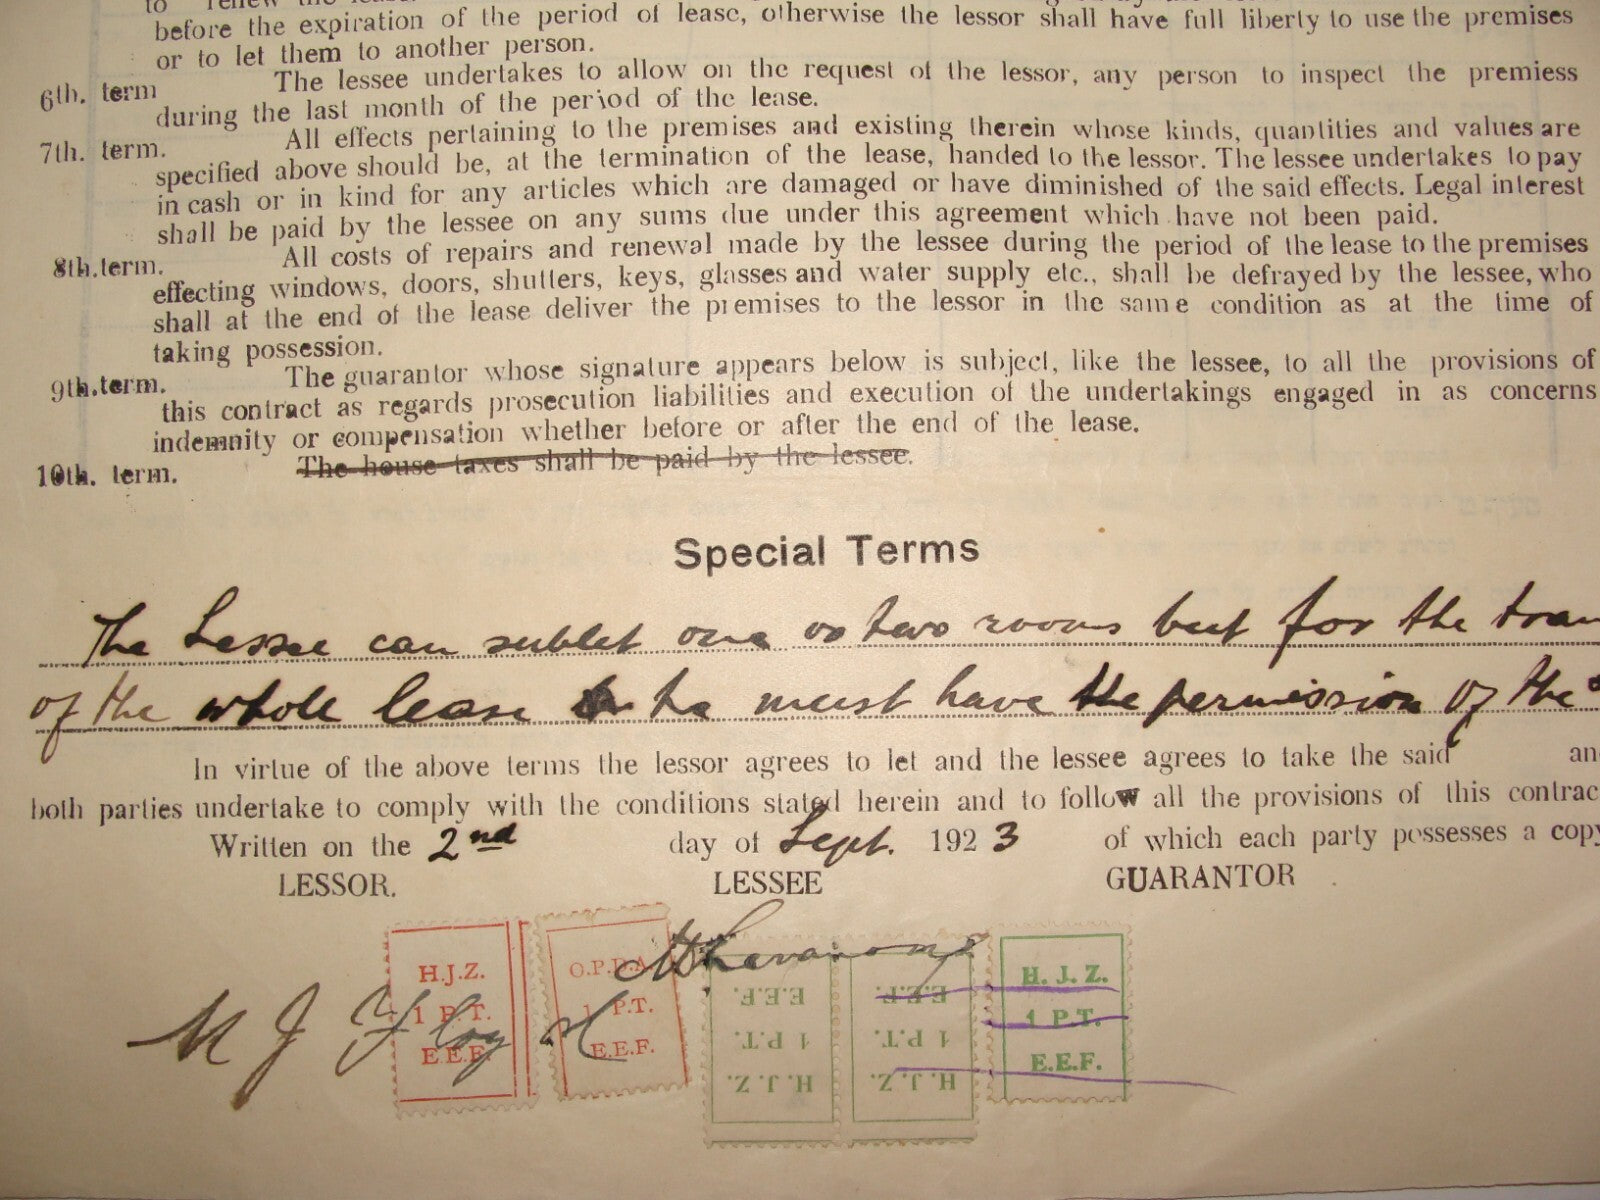 to renew the lease.
before the expiration of the period of lease, otherwise the lessor shall have full liberty to use the premises
or to let them to another person.
6th. term The lessee undertakes to allow on the request of the lessor, any person to inspect the premiess
during the last month of the period of the lease.
7th. term. All effects pertaining to the premises and existing therein whose kinds, quantities and values are
specified above should be, at the termination of the lease, handed to the lessor. The lessee undertakes to pay
in cash or in kind for any articles which are damaged or have diminished of the said effects. Legal interest
shall be paid by the lessee on any sums due under this agreement which have not been paid.
8th.term. All costs of repairs and renewal made by the lessee during the period of the lease to the premises
effecting windows, doors, shutters, keys, glasses and water supply etc., shall be defrayed by the lessee, who
shall at the end of the lease deliver the premises to the lessor in the same condition as at the time of
taking possession.
9th.term. The guarantor whose signature appears below is subject, like the lessee, to all the provisions of
this contract as regards prosecution liabilities and execution of the undertakings engaged in as concerns
indemnity or compensation whether before or after the end of the lease.
10th. term. The house taxes shall be paid by the lessee.
Special Terms
The Lessee can sublet one or two rooms but for the tran
of the whole lease he must have the permission of the
In virtue of the above terms the lessor agrees to let and the lessee agrees to take the said an
both parties undertake to comply with the conditions stated herein and to follow all the provisions of this contrac
Written on the 2nd day of Sept. 1923 of which each party possesses a copy
LESSOR. LESSEE GUARANTOR
H.J.Z. 1 P.T. E.E.F.
O.P.D.A. 1 P.T. E.E.F.
H.J.Z. 1 P.T. E.E.F.
H.J.Z. 1 P.T. E.E.F.
H.J.Z. 1 P.T. E.E.F.
M J